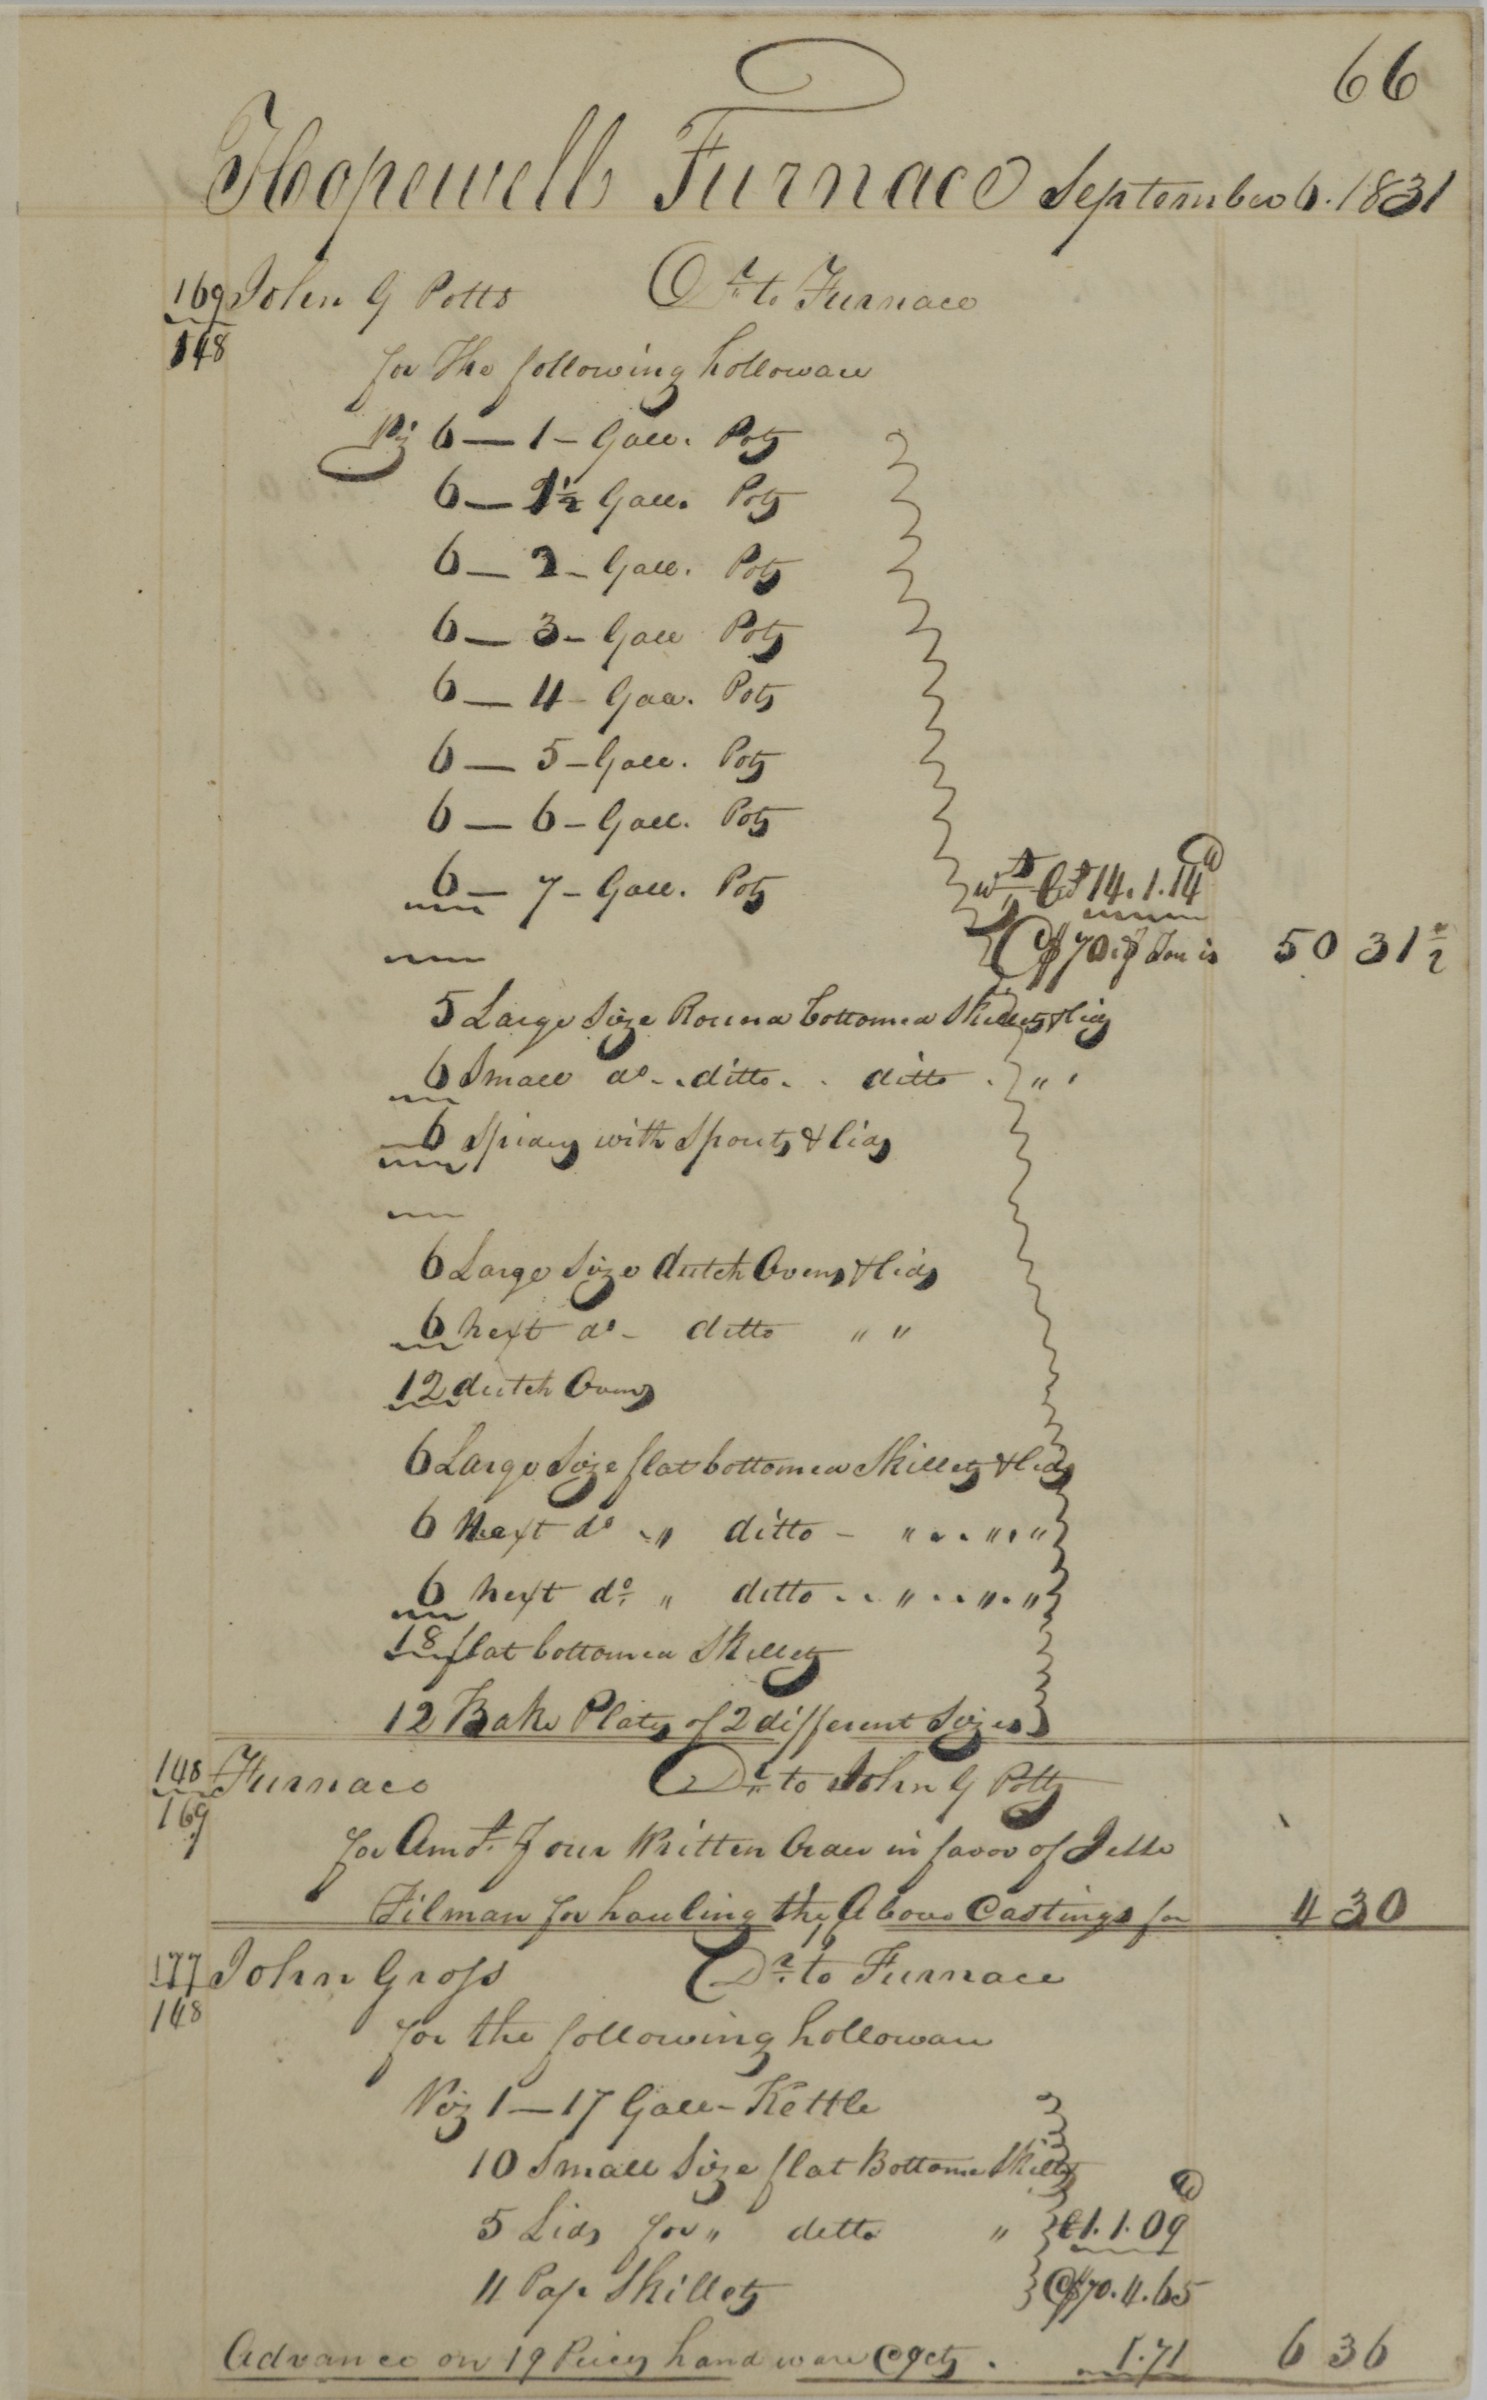 66
Hopewell Furnace September 6. 1831
169 John G Potts Dr. to Furnace
148
for the following holloware
Viz 6 — 1 – Gall. Pots
6 — 1½ Gall. Pots
6 — 2 – Gall. Pots
6 — 3 – Gall Pots
6 — 4 – Gall. Pots
6 — 5 – Gall. Pots
6 — 6 – Gall. Pots
6 — 7 – Gall. Pots wt. Ct 14.1.14
@ $70 p Ton is 50 31½
5 Large Size Round bottomed Skillets & lids
6 Small do - . ditto . . ditto . " "
6 Spiders with Spouts & lids
6 Large Size dutch Ovens & lids
6 next do - ditto " "
12 dutch Ovens
6 Large Size flat bottomed Skillets & lids
6 Next do . " ditto – " . . " . "
6 next do. " ditto . . " . . " . "
18 flat bottomed Skillets
12 Bake Plates of 2 different Sizes
148 Furnace Dr. to John G Potts
169
for Amot. of our Written Order in favor of Jesse
Tilman for hauling the Above Castings for 4 30
177 John Gross Dr. to Furnace
148
for the following holloware
Viz 1 — 17 Gall – Kettle
10 Small Size flat Bottome Skillts
5 Lids for " ditto " C 1.1.09
4 Pap Skillets @ $70. 4.65
Advance on 19 Pieces hand ware @ 9cts . 1.71 6 36